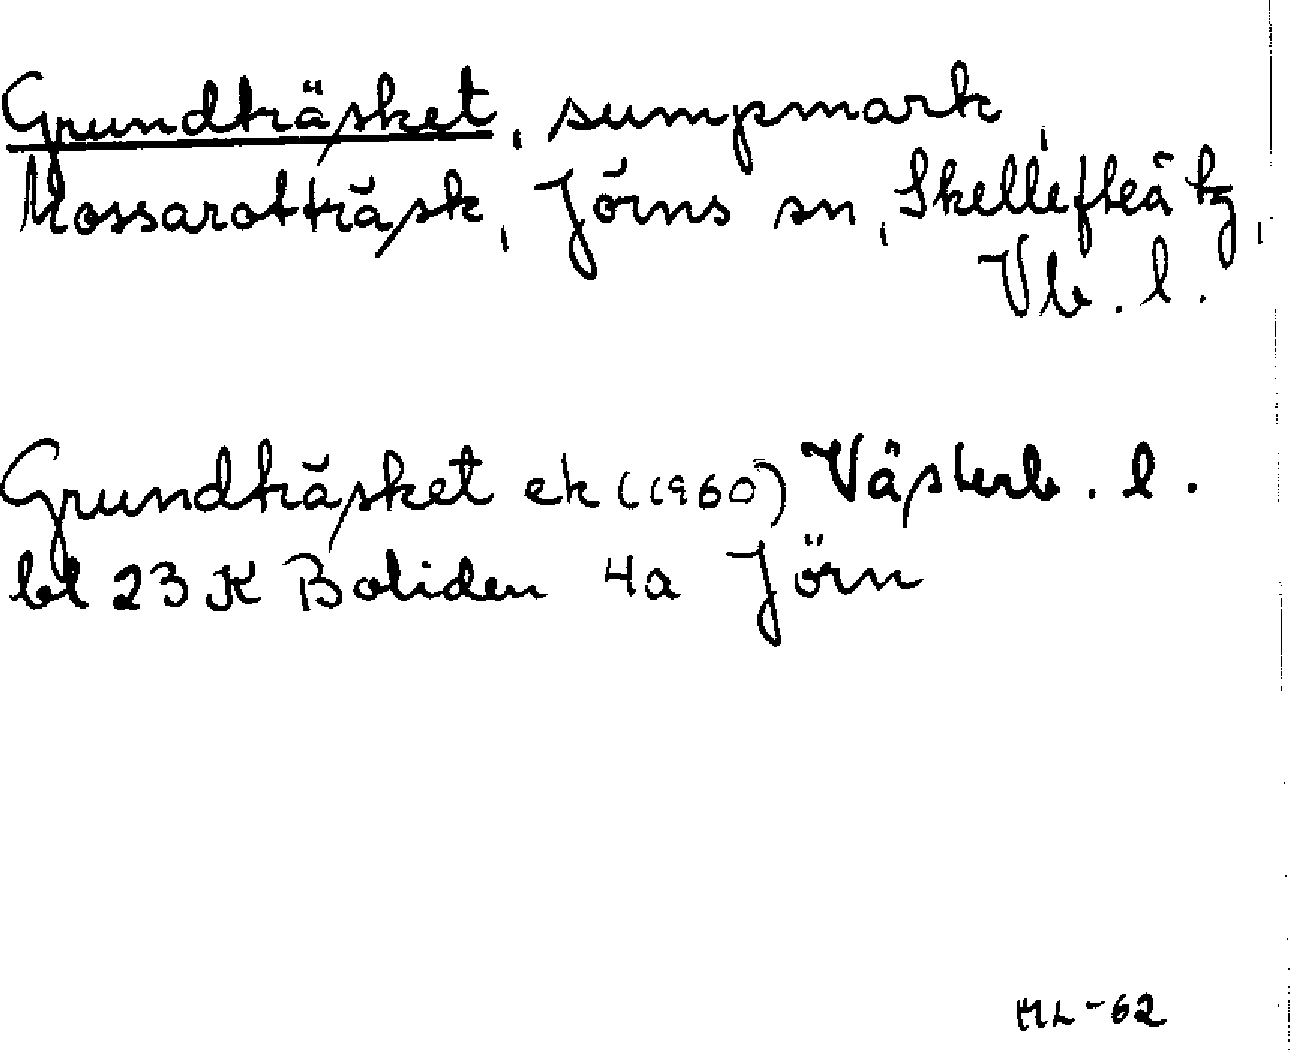 Grundträsket, sumpmark,
Mossarotträsk, Jörns sn, Skellefteå tg,
Vb. l.
Grundträsket ek (1960) Västerb. l.
bl 23 K Boliden 4a Jörn
ML-62